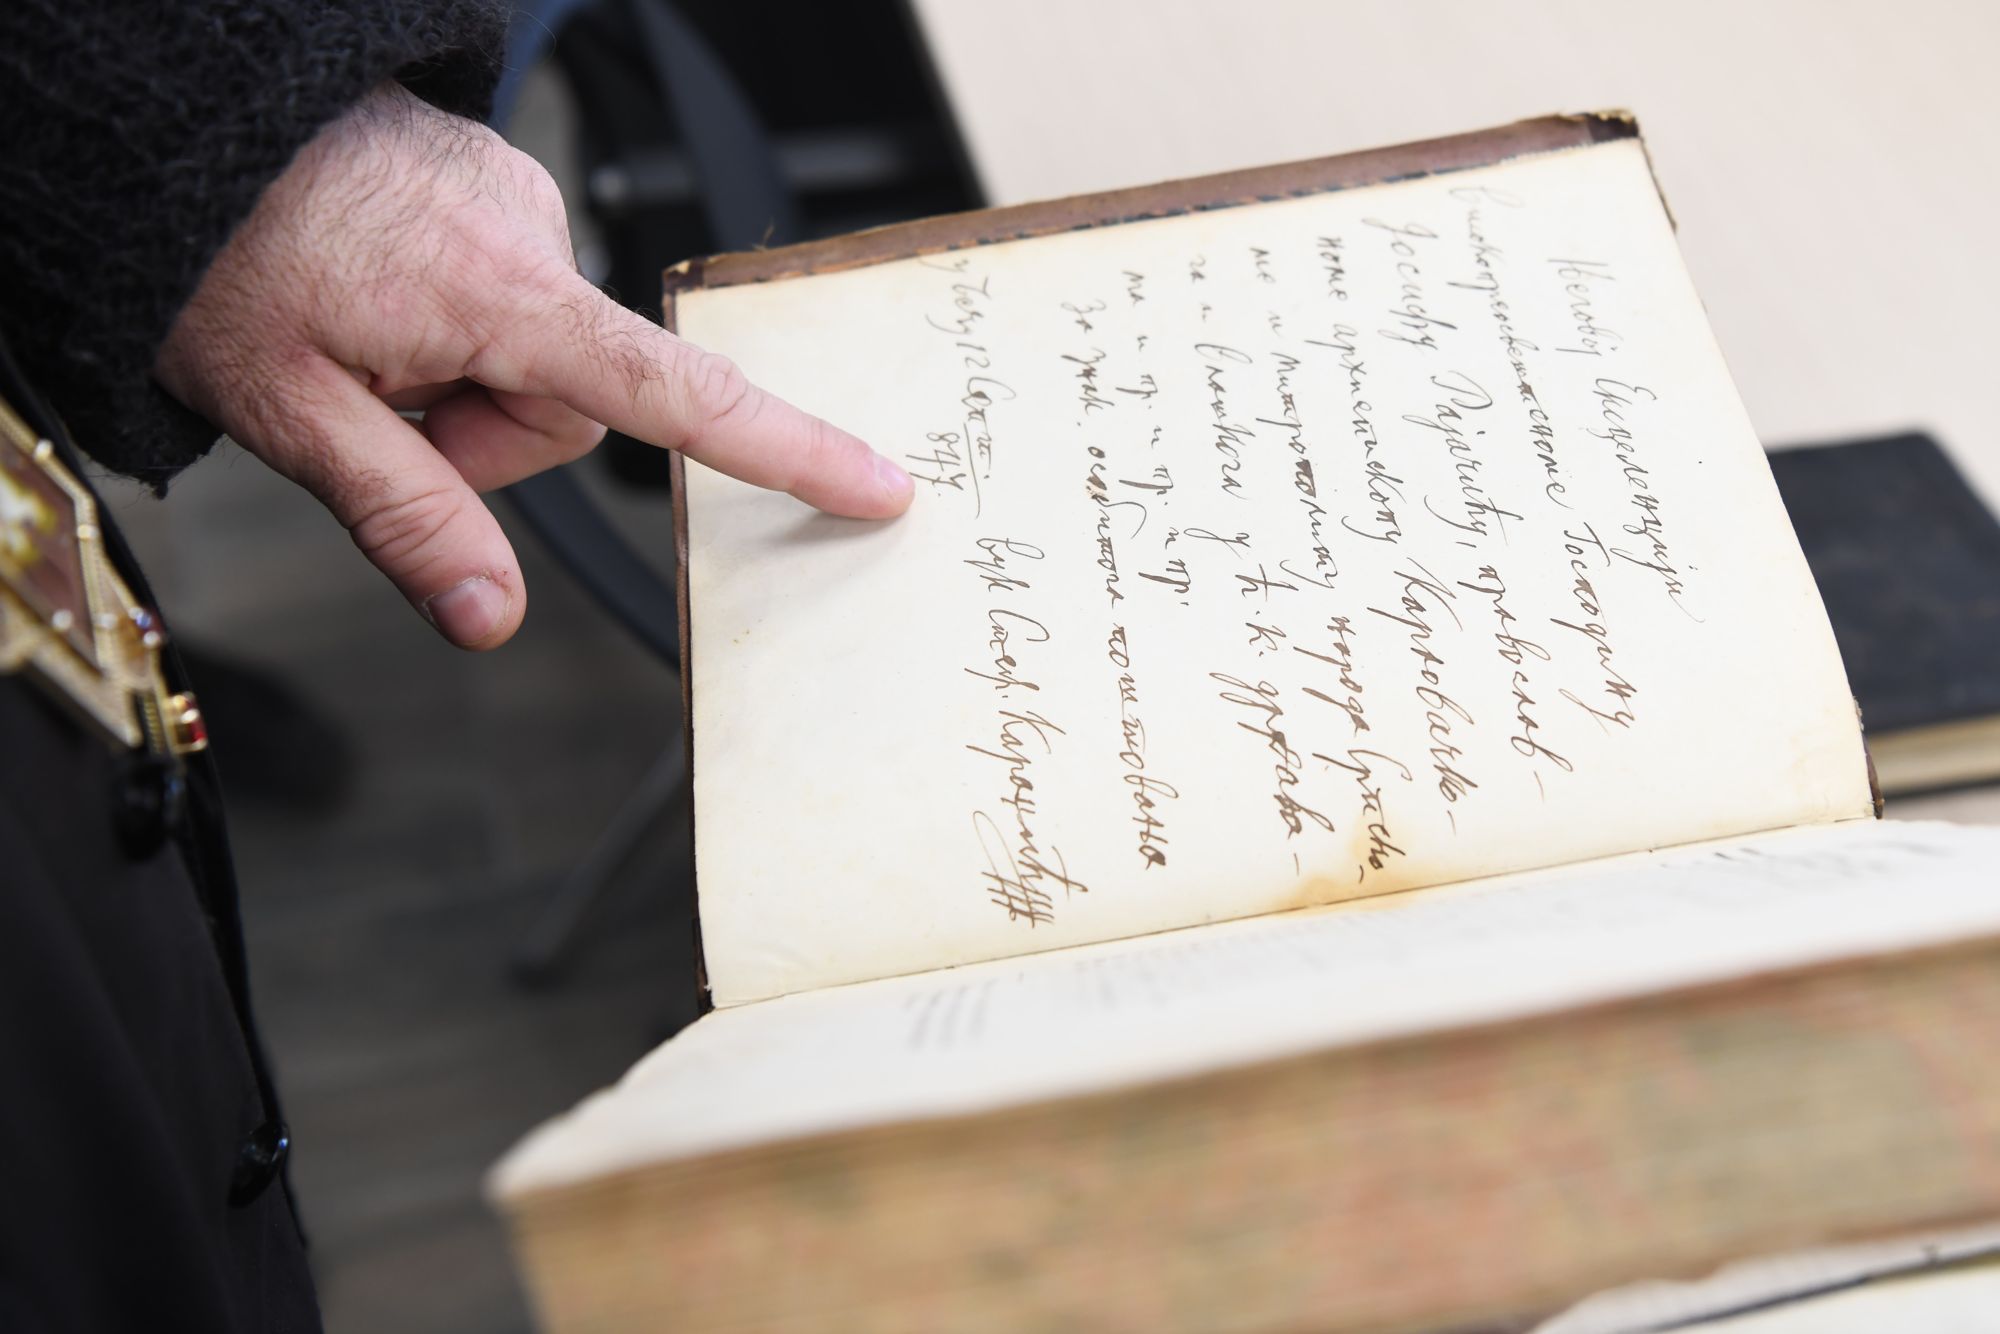 Његовој Екселенцији
Високопреосвештеноме Господину
Јосифу Рајачићу, православ-
номе архиепископу Карловачко-
ме и митрополиту народа Српско-
га и Влашкога у ц. к. држава-
ма и пр. и пр. и пр.
За знак особитога поштовања
у Бечу 12 Септ.
847.
Вук Стеф. Караџић